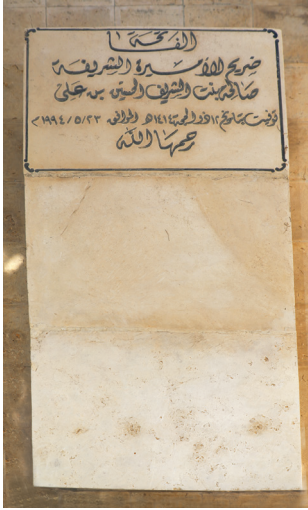 الفاتحة
ضريح الأميرة الشريفة
صالحة بنت الشريف الحسين بن علي
توفيت بتاريخ ١٢ ذو الحجة ١٤١٤هـ الموافق ١٩٩٤/٥/٢٣م
رحمها الله